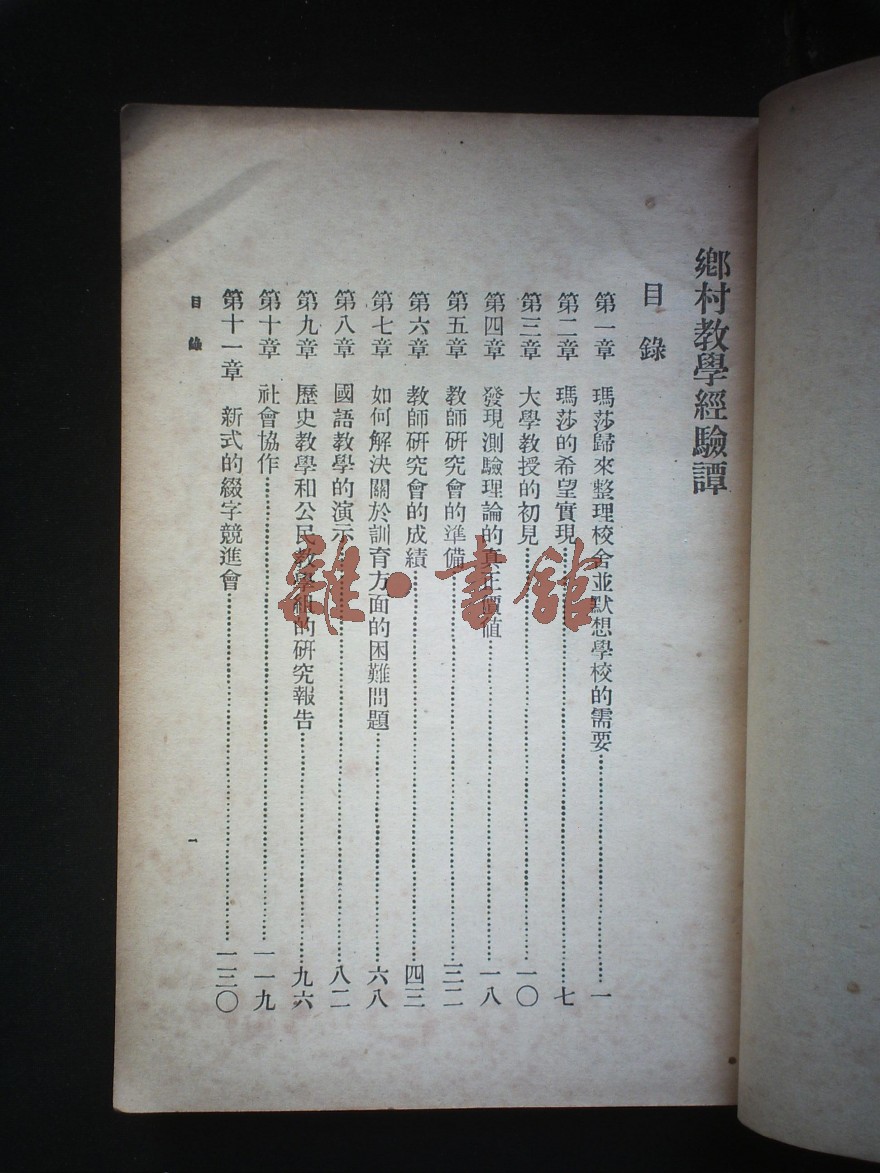 鄉村教學經驗譚
目錄
第一章 瑪莎歸來整理校舍並默想學校的需要……一
第二章 瑪莎的希望實現……七
第三章 大學教授的初見……一〇
第四章 發現測驗理論的真正價值……一八
第五章 教師研究會的準備……三二
第六章 教師研究會的成績……四三
第七章 如何解決關於訓育方面的困難問題……六八
第八章 國語教學的演示……八二
第九章 歷史教學和公民教學組的研究報告……九六
第十章 社會協作……一一九
第十一章 新式的綴字競進會……一三〇
目錄
一
雜·書館